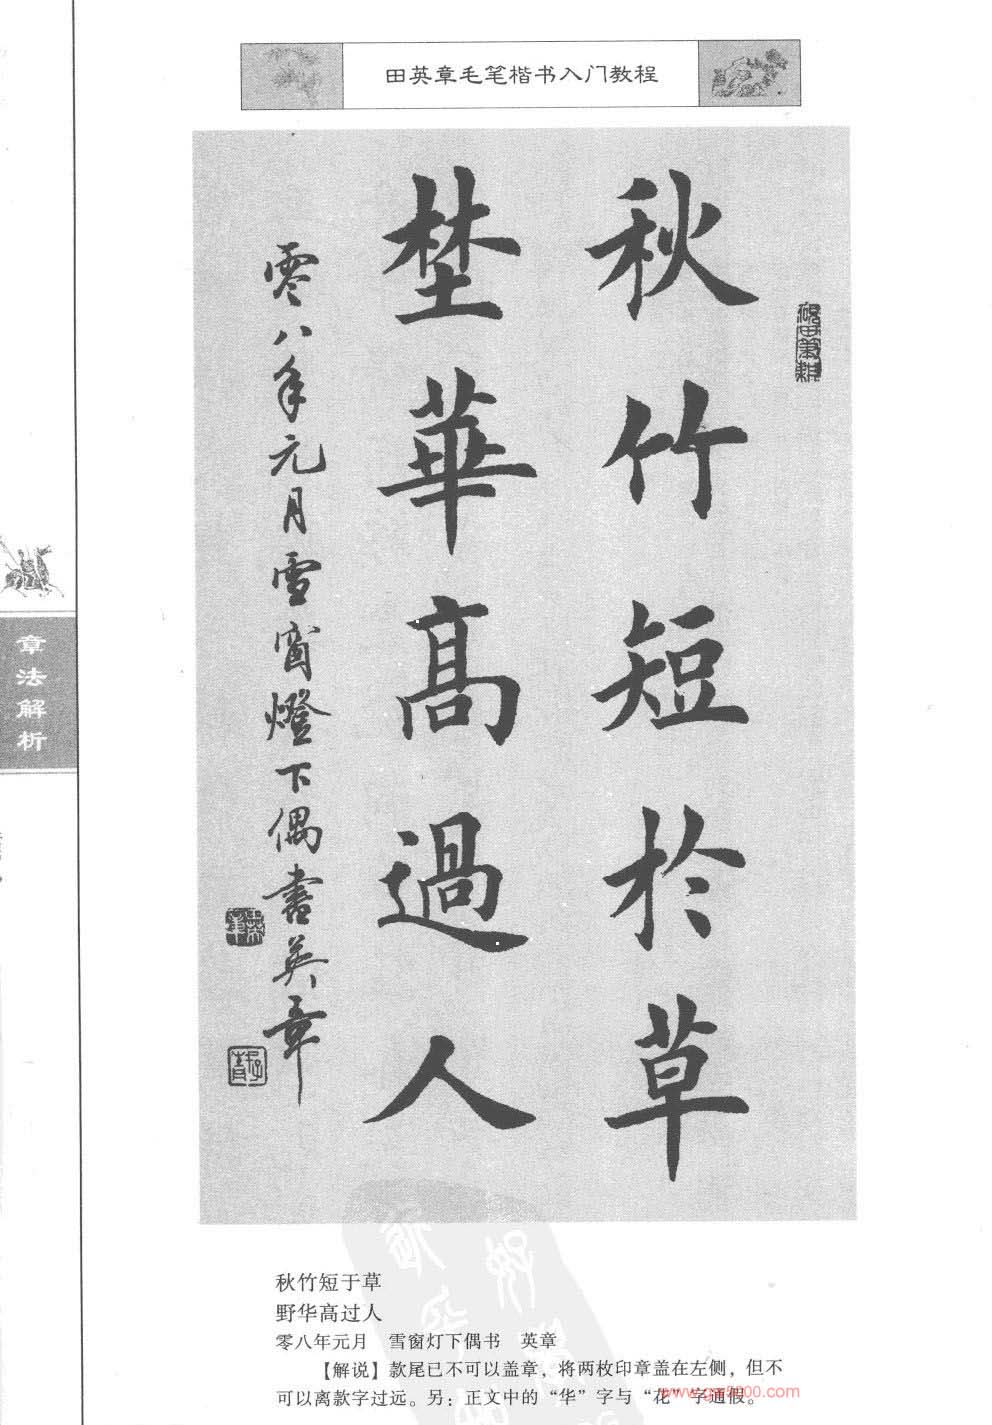 田英章毛笔楷书入门教程
秋竹短於草
埜華高過人
零八年元月雪窗燈下偶書英章
章法解析
秋竹短于草
野华高过人
零八年元月　雪窗灯下偶书　英章
【解说】款尾已不可以盖章，将两枚印章盖在左侧，但不
可以离款字过远。另：正文中的“华”字与“花”字通假。